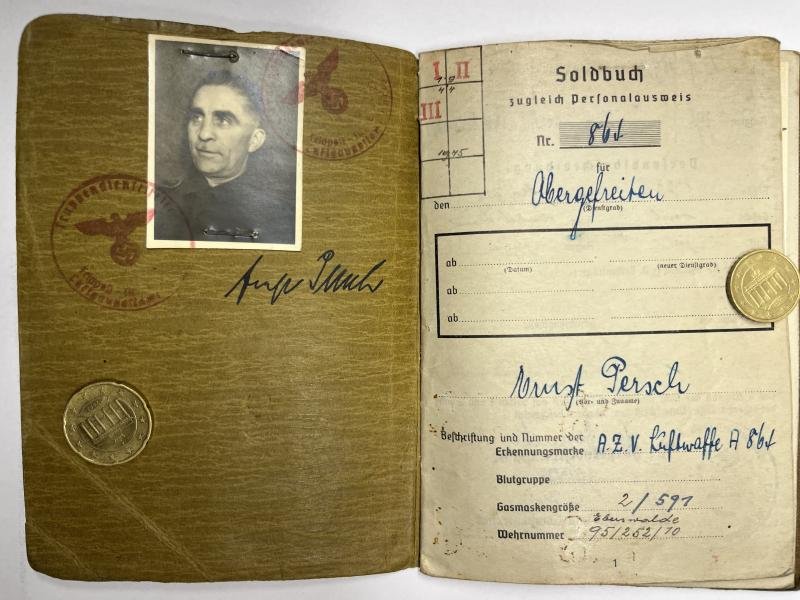 Truppendienststelle
Ernst Persch
I II
III
Soldbuch
zugleich Personalausweis
Nr. 864
für
den Obergefreiten
(Dienstgrad)
ab
(Datum) (neuer Dienstgrad)
ab
ab
Ernst Persch
(Vor- und Zuname)
Beschriftung und Nummer der
Erkennungsmarke A.Z.V. Luftwaffe A 864
Blutgruppe
Gasmaskengröße 2/591
Eberswalde
Wehrnummer 95/252/10
1